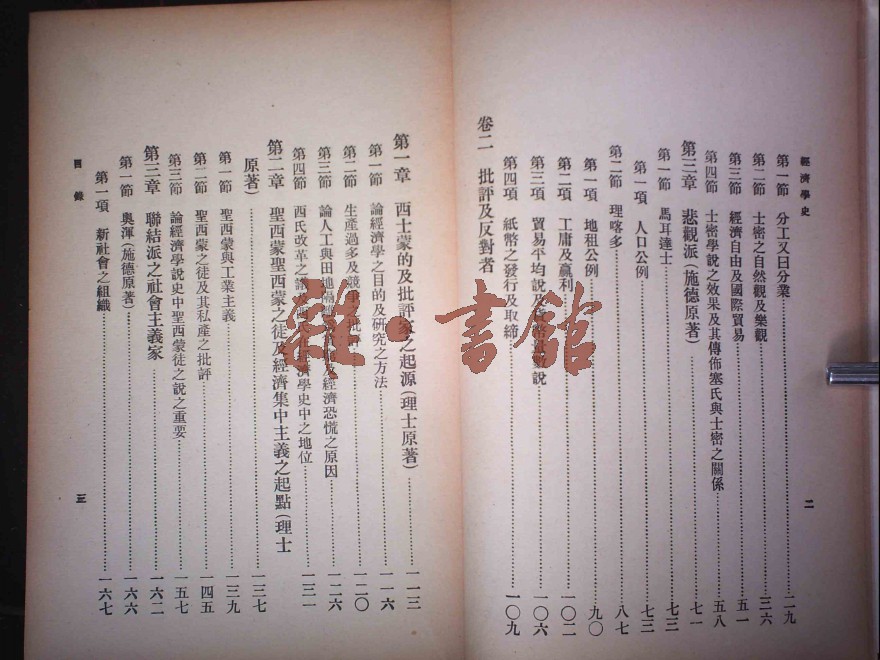 經濟學史
第一節 分工又曰分業……二九
第二節 士密之自然觀及樂觀……三六
第三節 經濟自由及國際貿易……五一
第四節 士密學說之效果及其傳佈塞氏與士密之關係……五八
第三章 悲觀派（施德原著）……七一
第一節 馬耳達士……七三
第一項 人口公例……七三
第二節 理喀多……八七
第一項 地租公例……九〇
第二項 工庸及贏利……一〇二
第三項 貿易平均說及貨幣數說……一〇六
第四項 紙幣之發行及取締……一〇九
卷二 批評及反對者
二
第一章 西士蒙的及批評家之起源（理士原著）……一一三
第一節 論經濟學之目的及研究之方法……一一六
第二節 生產過多及競爭之批評……一二〇
第三節 論人工與田地及經濟恐慌之原因……一二六
第四節 西氏改革之經濟學史中之地位……一三一
第二章 聖西蒙聖西蒙之徒及經濟集中主義之起點（理士
原著）……一三七
第一節 聖西蒙與工業主義……一三九
第二節 聖西蒙之徒及其私產之批評……一四五
第三節 論經濟學說史中聖西蒙徒之說之重要……一五七
第三章 聯結派之社會主義家……一六二
第一節 奧渾（施德原著）……一六六
第一項 新社會之組織……一六七
目錄
三
雜·書館